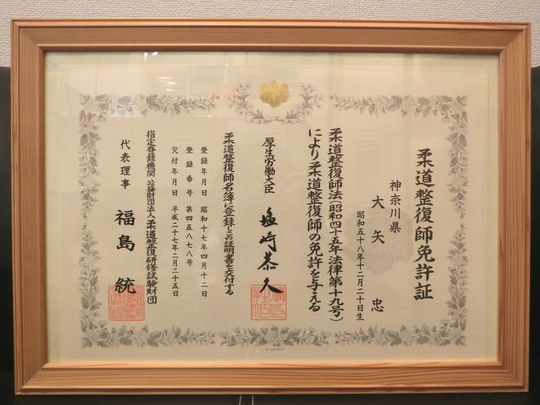 柔道整復師免許証
神奈川県
大矢 忠
昭和五十八年十二月二十日生
柔道整復師法(昭和四十五年法律第十九号)
により柔道整復師の免許を与える
厚生労働大臣 塩崎恭久
柔道整復師名簿に登録しこの証明書を交付する
登録年月日 昭和十七年四月十二日
登録番号 第四五八七八号
交付年月日 平成二十七年二月二十五日
指定登録機関 公益財団法人柔道整復研修試験財団
代表理事 福島 統